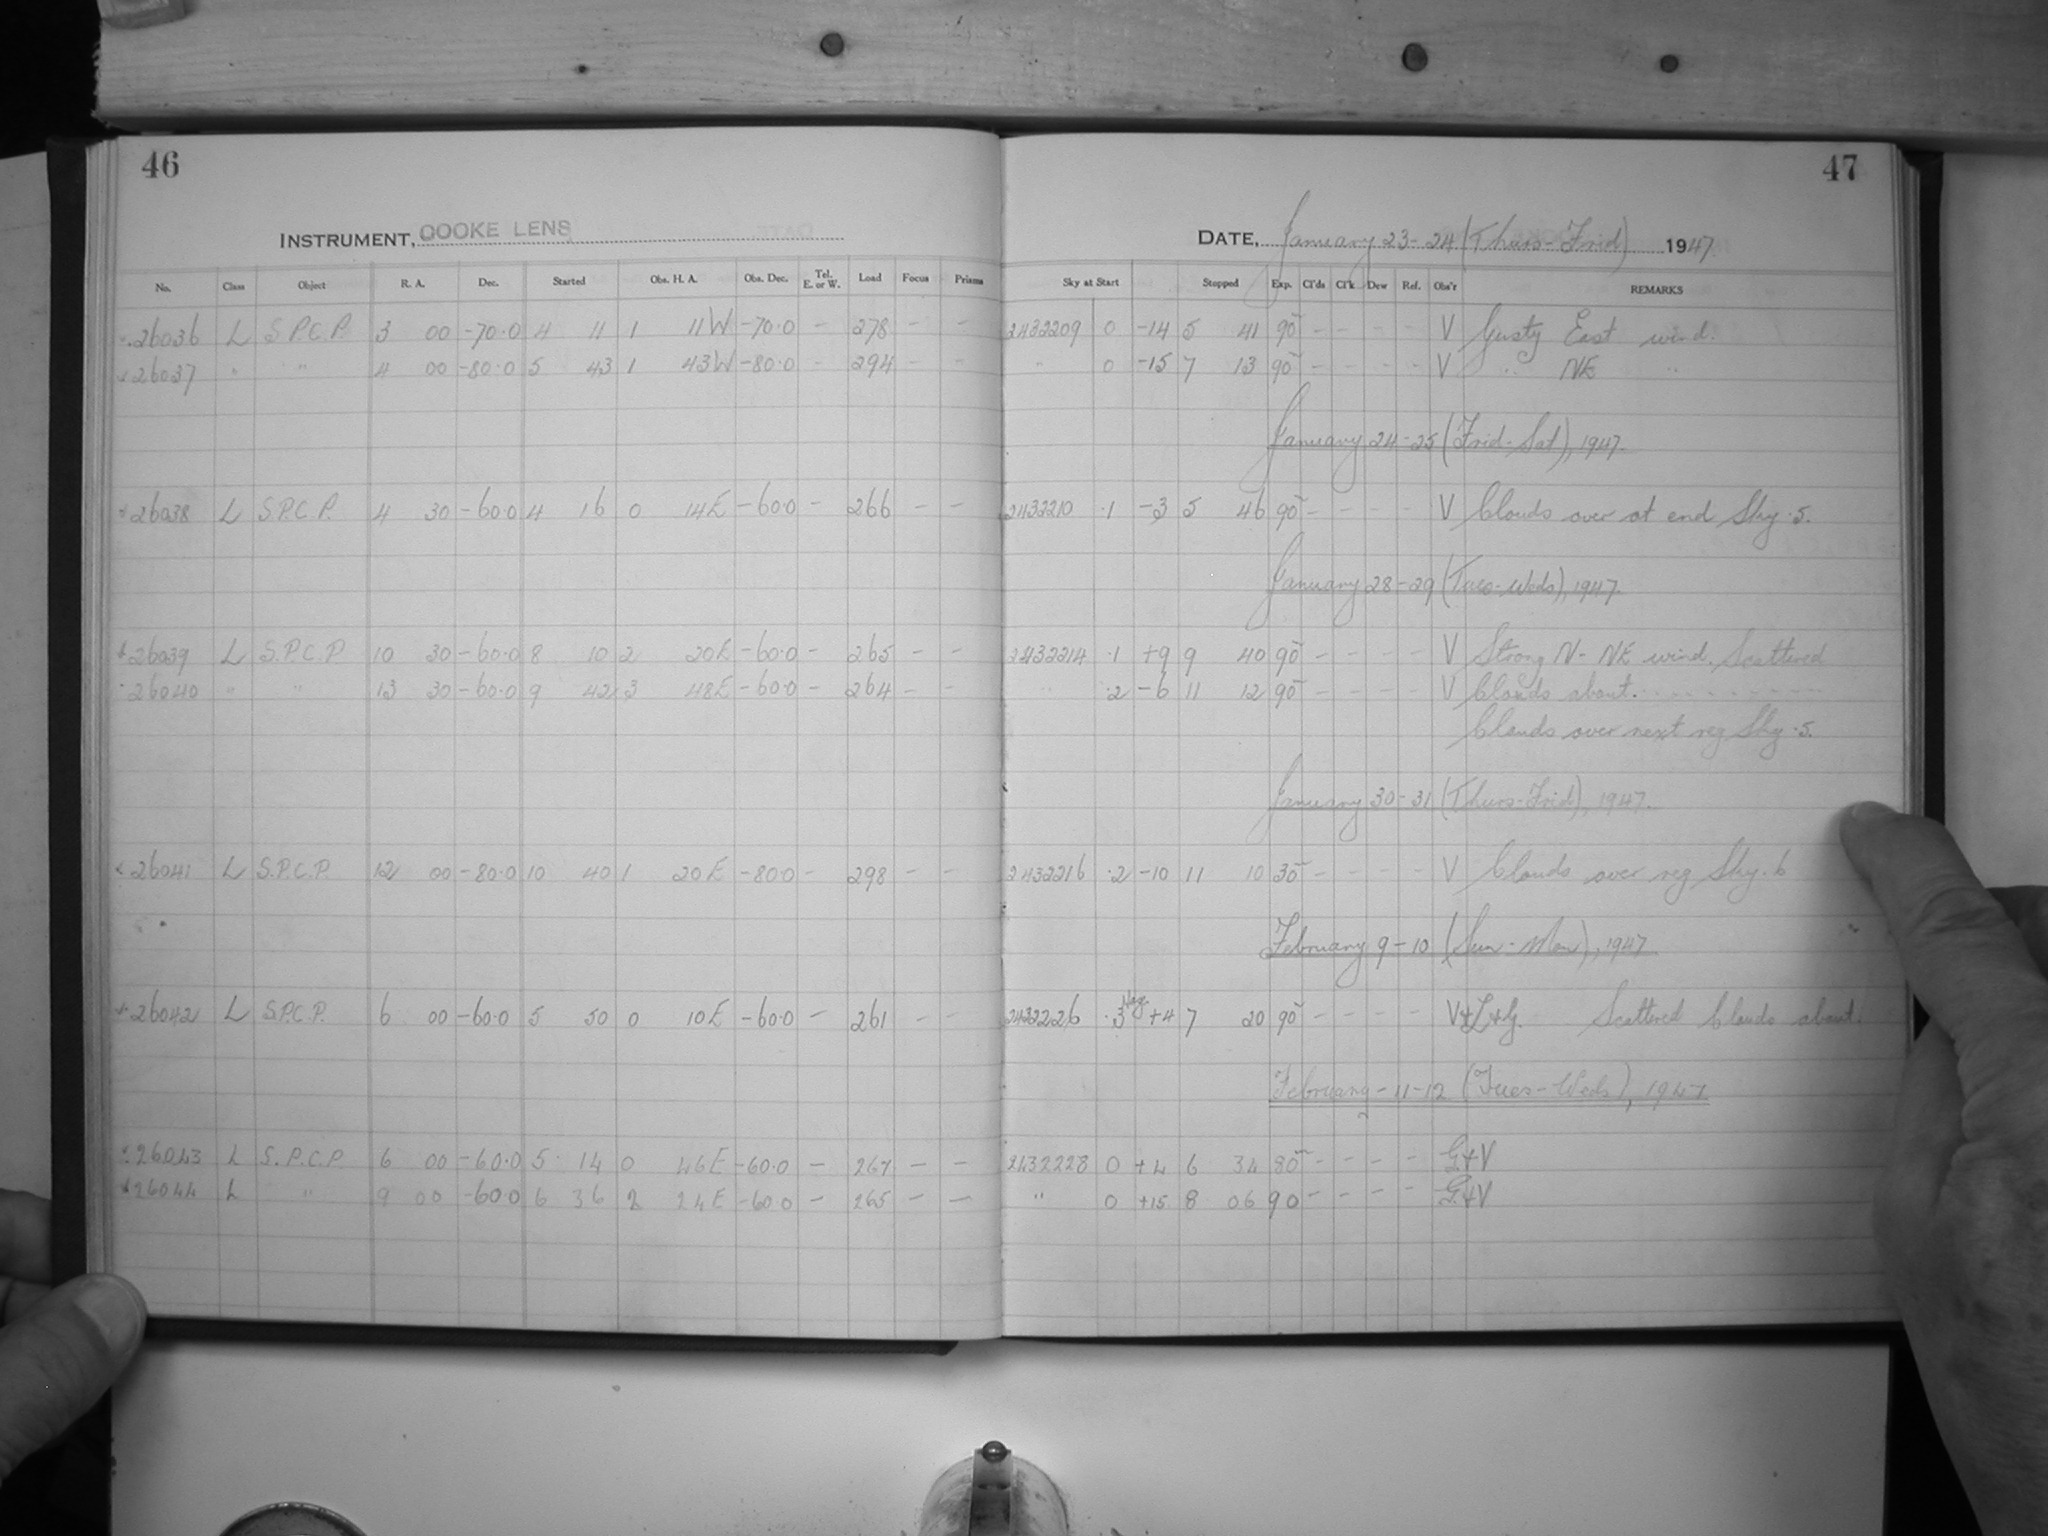 46
INSTRUMENT, COOKE LENS
No. Class Object R. A. Dec. Started Obs. H. A. Obs. Dec. Tel. E. or W. Load Focus Prisms
26036 L S.P.C.P. 3 00 -70.0 4 11 1 11W -70.0 - 278 - -
26037 " " 4 00 -80.0 5 43 1 43W -80.0 - 294 - "
26038 L S.P.C.P. 4 30 -60.0 4 16 0 14E -60.0 - 266 - -
26039 L S.P.C.P 10 30 -60.0 8 10 2 20E -60.0 - 265 - -
26040 " " 13 30 -60.0 9 42 3 48E -60.0 - 264 - -
26041 L S.P.C.P. 12 00 -80.0 10 40 1 20E -80.0 - 298 - -
26042 L S.P.C.P. 6 00 -60.0 5 50 0 10E -60.0 - 261 - -
26043 L S.P.C.P. 6 00 -60.0 5 14 0 46E -60.0 - 267 - -
26044 L " 9 00 -60.0 6 36 2 24E -60.0 - 265 - -
47
DATE, January 23-24 (Thurs-Frid) 1947
Sky at Start Stopped Exp. Cl'ds Cl'k Dew Ref. Obs'r REMARKS
2432209 0 -14 5 41 90 - - - - V Gusty East wind.
" 0 -15 7 13 90 - - - - V " NE "
January 24-25 (Frid-Sat), 1947.
2432210 .1 -3 5 46 90 - - - - V Clouds over at end Sky .5.
January 28-29 (Tues-Weds), 1947.
2432214 .1 +9 9 40 90 - - - - V Strong N-NE wind. Scattered
" .2 -6 11 12 90 - - - - V Clouds about.
Clouds over next reg Sky .5.
January 30-31 (Thurs-Frid), 1947.
2432216 .2 -10 11 10 30 - - - - V Clouds over reg Sky .6
February 9-10 (Sun-Mon), 1947
2432226 .3 Haz +4 7 20 90 - - - - V+L+G. Scattered Clouds about.
February-11-12 (Tues-Weds), 1947.
2432228 0 +4 6 34 80 - - - - G+V
" 0 +15 8 06 90 - - - - G+V